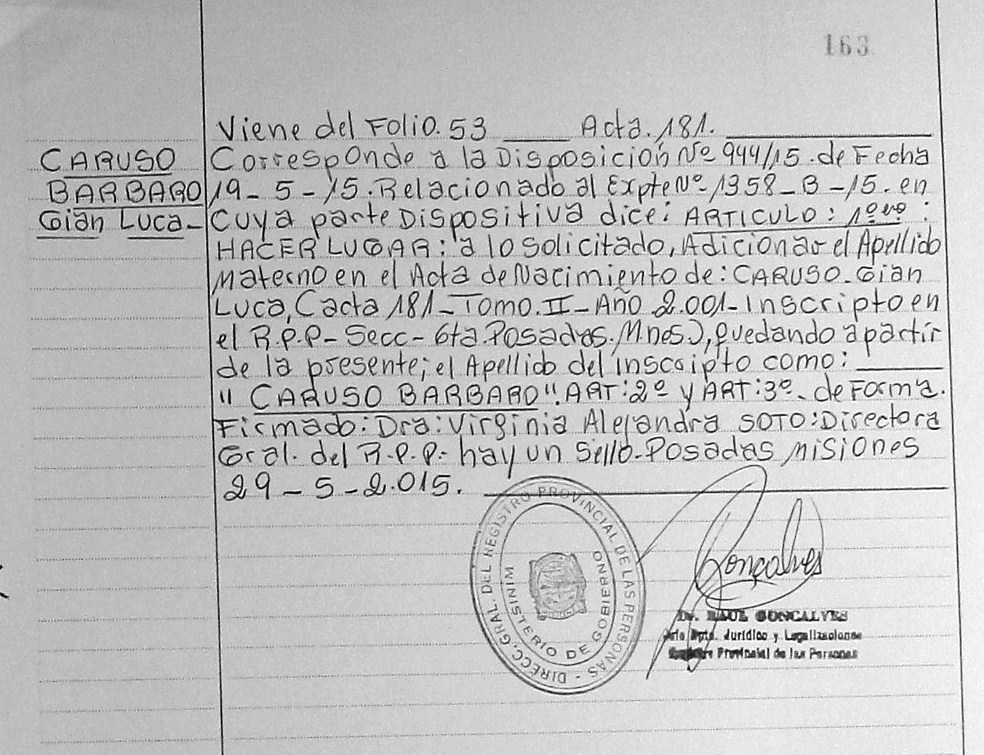 163
Viene del Folio. 53 ____ Acta. 181. ____
CARUSO
BARBARO
Gian Luca-
Corresponde a la Disposición Nº 944/15. de Fecha
19-5-15. Relacionado al Expte Nº 1358-B-15. en
Cuya parte Dispositiva dice: ARTICULO: 1º ero:
HACER LUGAR: a lo solicitado, Adicionar el Apellido
Materno en el Acta de Nacimiento de: CARUSO-Gian
Luca, Cacta 181-Tomo. II-Año 2.001-Inscripto en
el R.P.P- Secc- 6ta. Posadas. Mnes.), quedando a partir
de la presente; el Apellido del inscripto como: ____
" CARUSO BARBARO". ART: 2º y ART: 3º- de Forma.
Firmado: Dra: Virginia Alejandra SOTO: Directora
Gral. del R.P.P.- hay un Sello-Posadas Misiones
29-5-2.015. ____
DIRECC. GRAL. DEL REGISTRO PROVINCIAL DE LAS PERSONAS -
MINISTERIO DE GOBIERNO
Gonçalves
Dr. RAUL GONCALVES
Dpto. Jurídico y Legalizaciones
Registro Provincial de las Personas